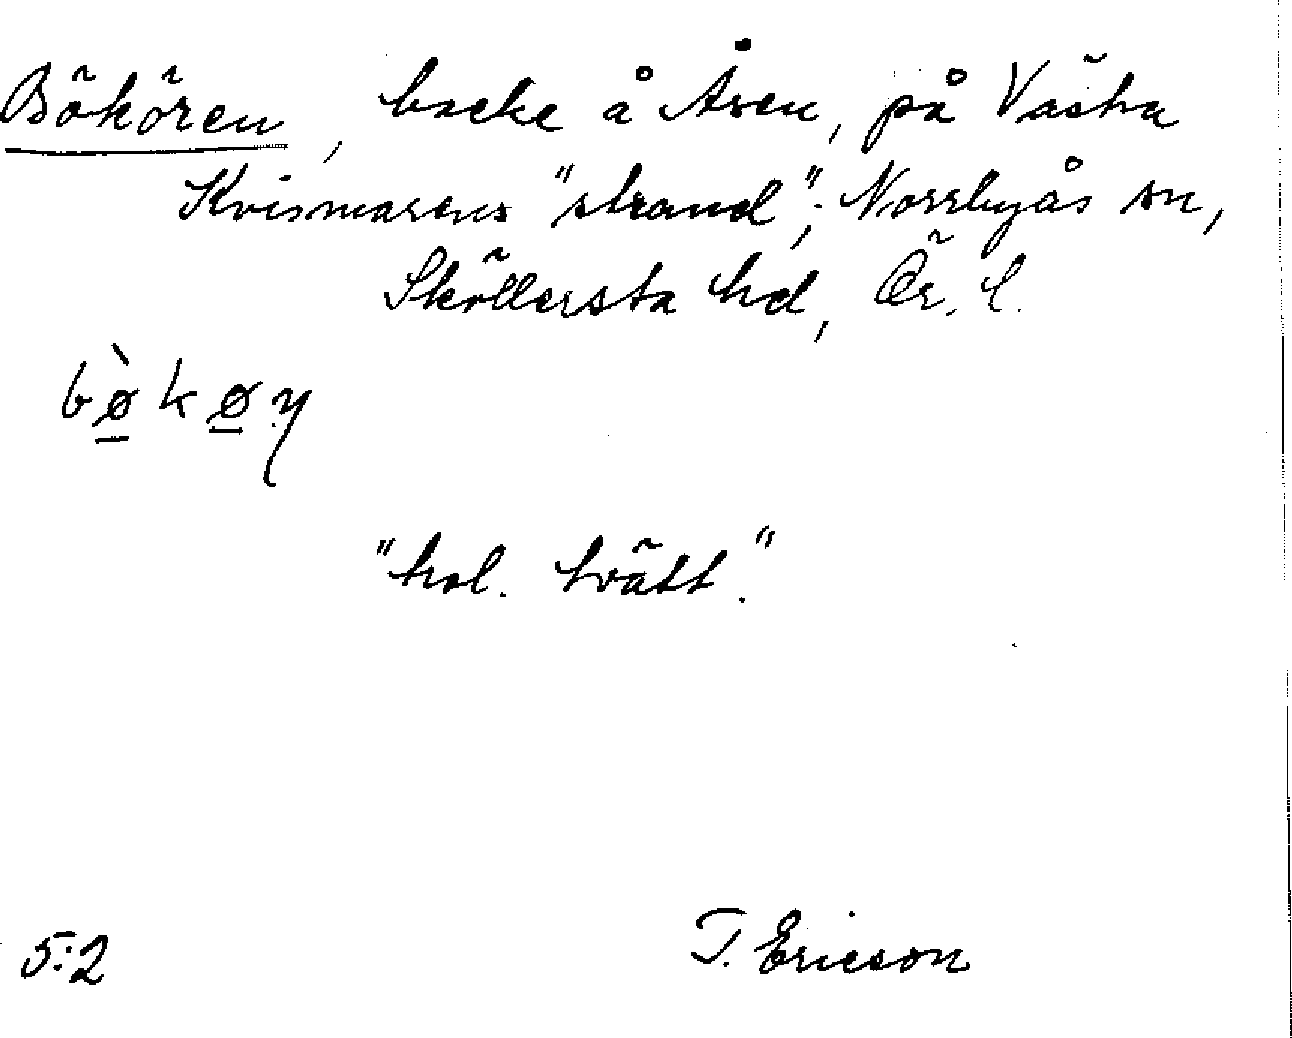 Bökören, backe å Åsen, på Västra
Kvismarens "strand", Norrbyås sn,
Sköllersta hd, Ör. l.
bø̀køn
"hol. tvätt."
5:2
T. Ericson